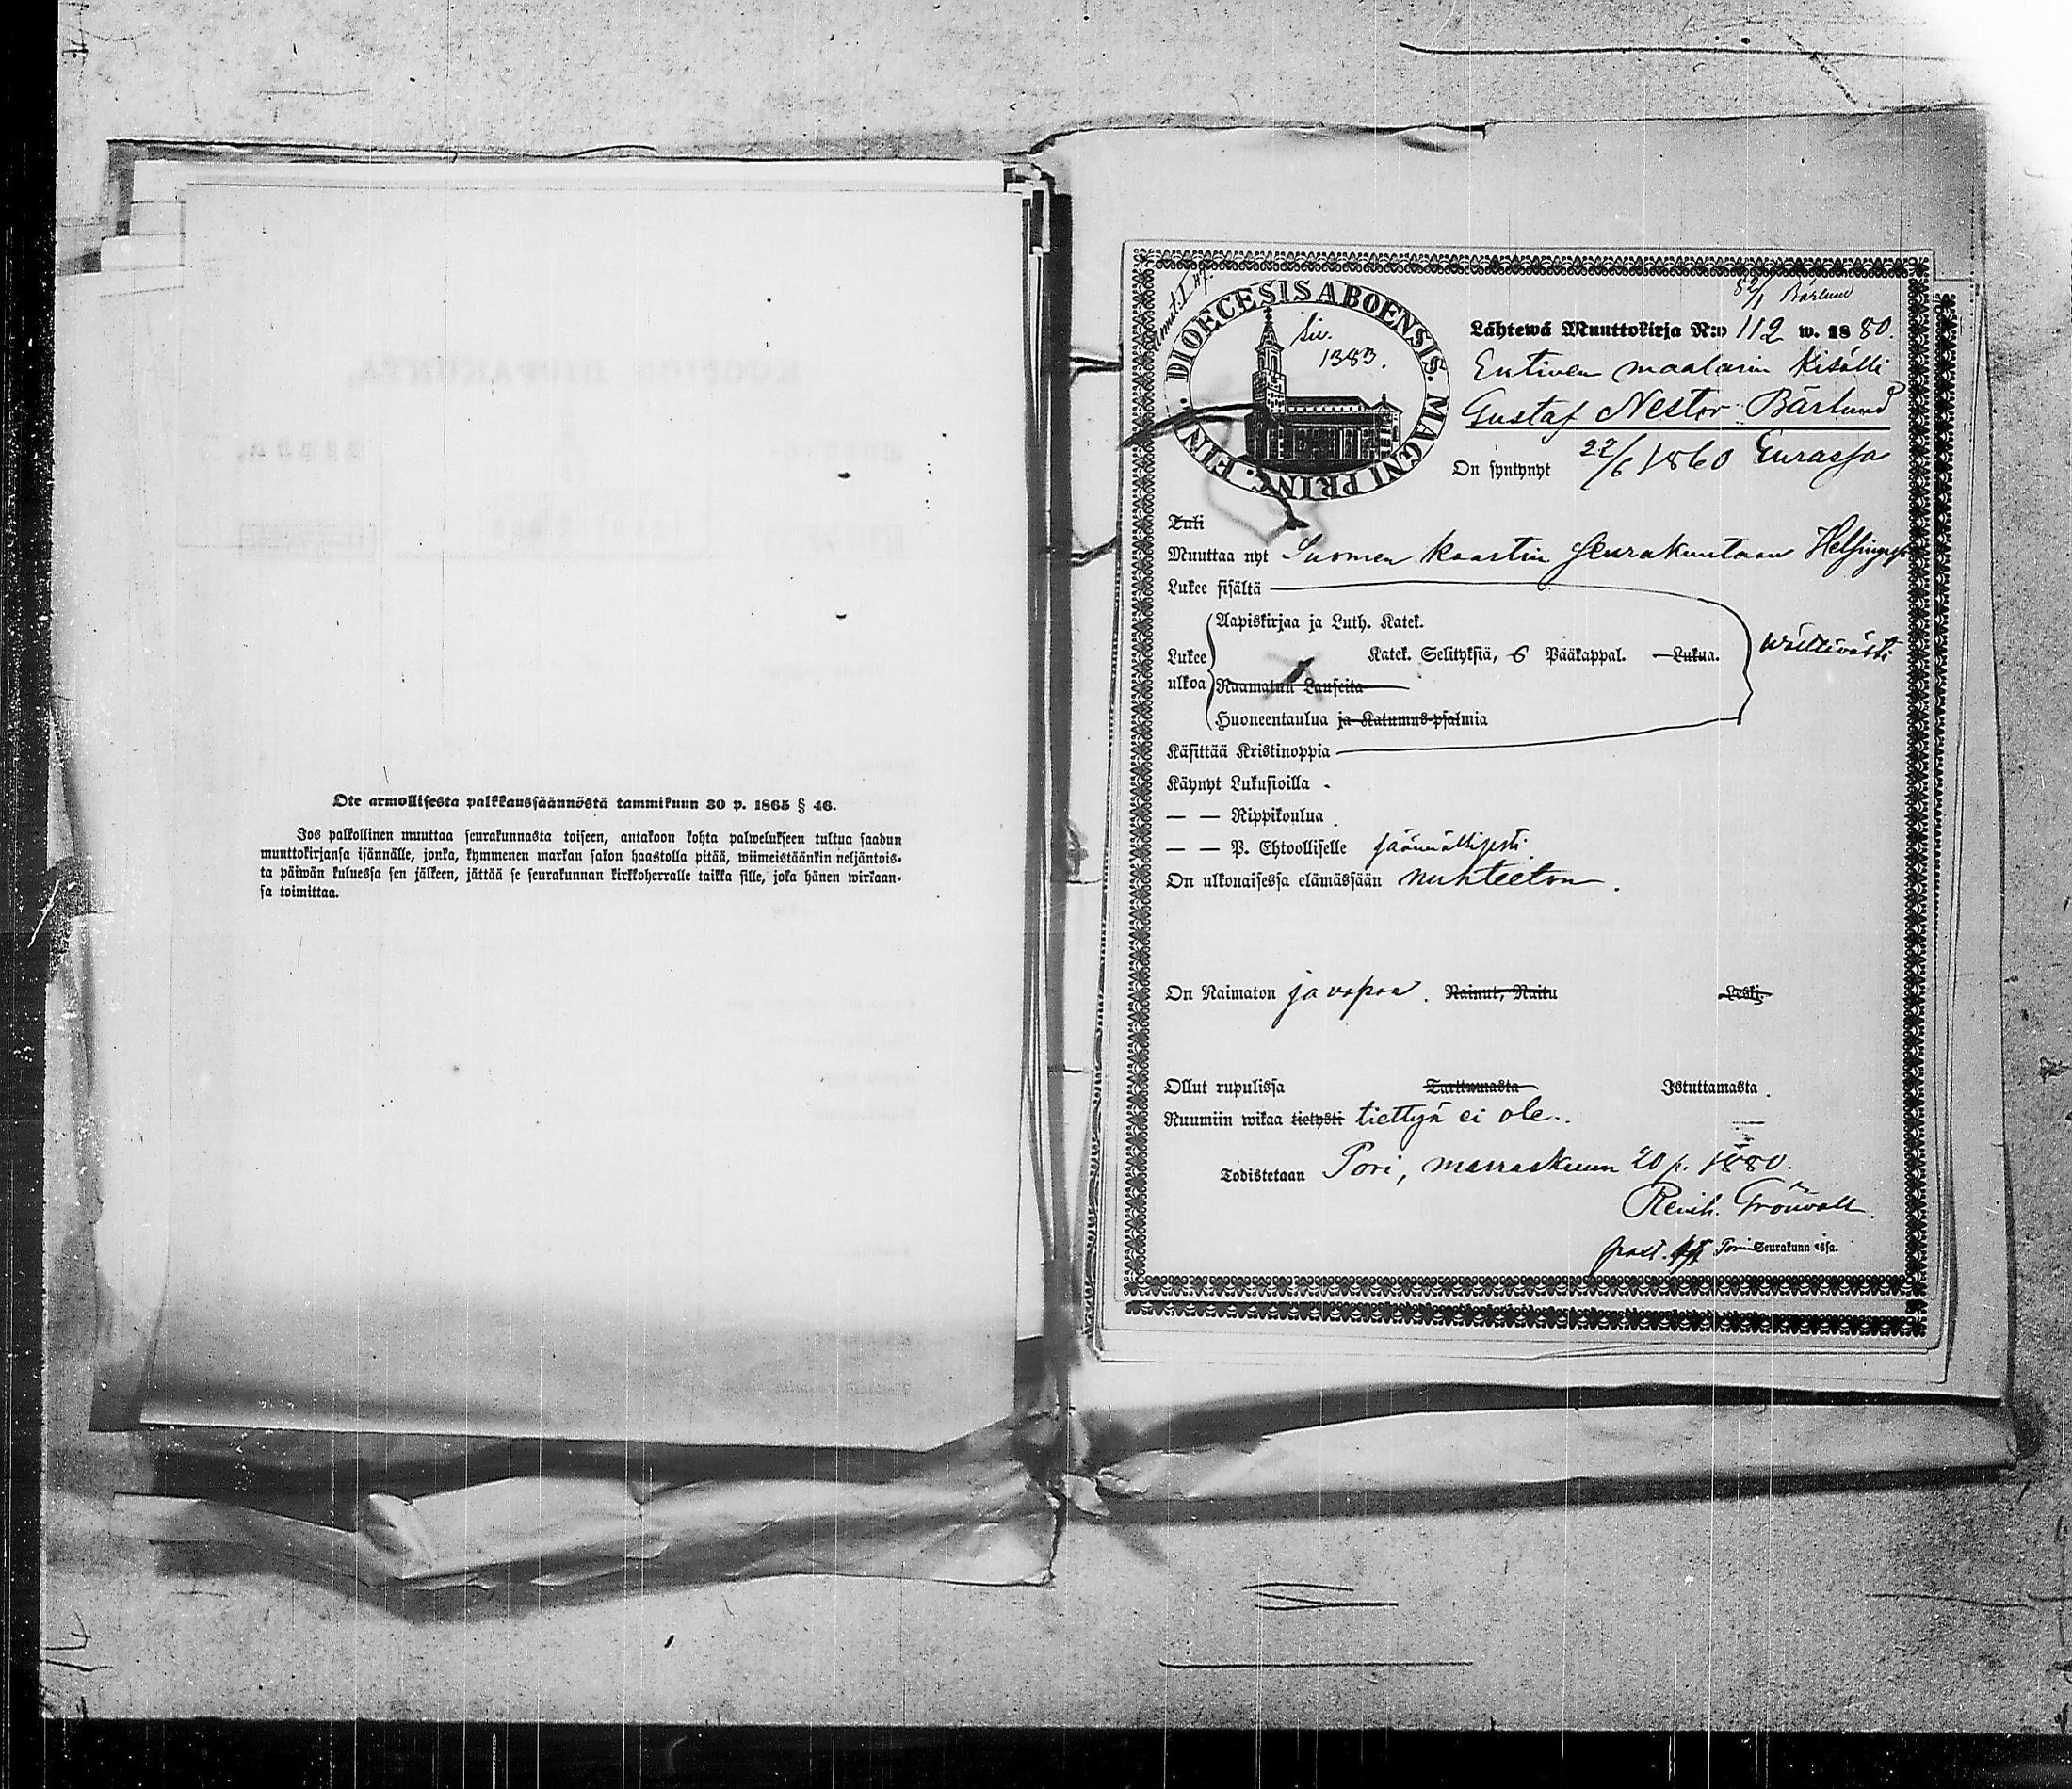 Ote armollisesta palkkaussäännöstä tammikuun 30 p. 1865 § 46.
Jos palkollinen muuttaa seurakunnasta toiseen, antakoon kohta palwelukseen tultua saadun
muuttokirjansa isännälle, jonka, kymmenen markan sakon haastolla pitää, wiimeistäänkin neljäntois-
ta päiwän kuluessa sen jälkeen, jättää se seurakunnan kirkkoherralle taikka sille, joka hänen wirkaan-
sa toimittaa.
82/1 Bärlund
DIOECESIS ABOENSIS. MAGNI PRINC. FINL.
Siv.
1383.
Lähtewä Muuttokirja N:o 112 w. 1880.
Entinen maalarin kisälli
Gustaf Nestor Bärlund
On syntynyt 22/6 1860 Eurassa
Tuli
Muuttaa nyt Suomen kaartin seurakuntaan
Lukee sisältä
Aapiskirjaa ja Luth. Katek.
Lukee ulkoa Katek. Selityksiä, 6 Pääkappal. Lukua. wälttävästi
Raamatun Lauseita
Huoneentaulua ja Katumus-psalmia
Käsittää Kristinoppia
Käynyt Lukusioilla
— — Rippikoulua
— — P. Ehtoolliselle säännöllisesti
On ulkonaisessa elämässään nuhteeton.
On Naimaton ja vapaa. Nainut, Naitu Leski.
Ollut rupulissa Tarttumasta Istuttamasta.
Ruumiin wikaa tietysti tiettyä ei ole.
Todistetaan Pori, marraskuun 20 p. 1880.
Reinh. Grönvall.
past. Porin Seurakunnassa.